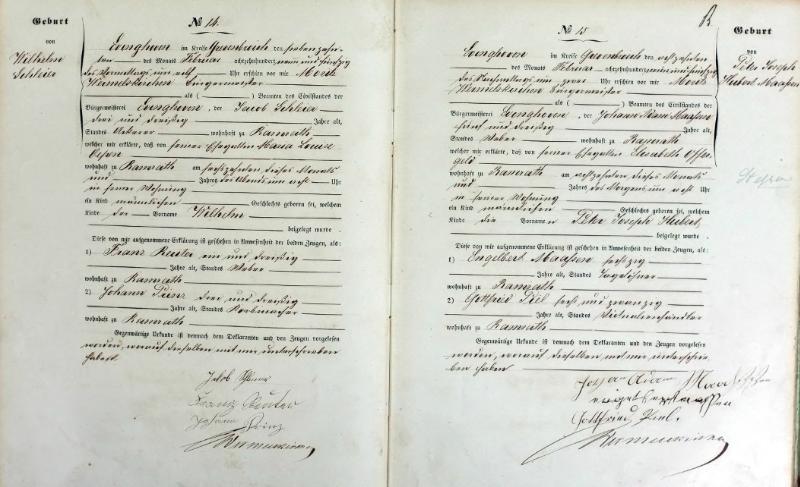 Geburt
von
Wilhelm
Schleia
№ 14.
im Kreise Grevenbroich den siebenzehn-
ten des Monats Februar achtzehnhundert neun und fünfzig
des Vormittags um elf Uhr erschien vor mir Moritz
Bürgermeister
als ( ) Beamten des Civilstandes der
Bürgermeisterei der Jacob Schleia
drei und dreißig Jahre alt,
Standes Ackerer wohnhaft zu Ramrath
welcher mir erklärte, daß von seiner Ehegattin Maria Louise
wohnhaft zu Ramrath am sechszehnten dieses Monats
und Jahres des Abends um acht Uhr
in seiner Wohnung
ein Kind männlichen Geschlechts geboren sei, welchem
Kinde der Vorname Wilhelm
beigelegt wurde.
Diese von mir aufgenommene Erklärung ist geschehen in Anwesenheit der beiden Zeugen, als:
1) Franz Reuter ein und dreißig
Jahre alt, Standes Weber
wohnhaft zu Ramrath
2) Johann Prinz drei und dreißig
Jahre alt, Standes Korbmacher
wohnhaft zu Ramrath
Gegenwärtige Urkunde ist demnach dem Deklaranten und den Zeugen vorgelesen
worden, worauf dieselben mit mir unterschrieben
haben.
Jakob
Franz Reuter
Johann Prinz
№ 15
im Kreise Grevenbroich den achtzehnten
des Monats Februar achtzehnhundert neun und fünfzig
des Nachmittags um zwei Uhr erschien vor mir Moritz
Bürgermeister
als ( ) Beamten des Civilstandes der
Bürgermeisterei der Johann Adam Maassen
fünf und dreißig Jahre alt,
Standes Weber wohnhaft zu Ramrath
welcher mir erklärte, daß von seiner Ehegattin Elisabeth Offer-
geld
wohnhaft zu Ramrath am achtzehnten dieses Monats
und Jahres des Morgens um acht Uhr
in seiner Wohnung
ein Kind männlichen Geschlechts geboren sei, welchem
Kinde die Vornamen Peter Joseph Hubert,
beigelegt wurde.
Diese von mir aufgenommene Erklärung ist geschehen in Anwesenheit der beiden Zeugen, als:
1) Engelbert Maassen sechszig
Jahre alt, Standes Tagelöhner
wohnhaft zu Ramrath
2) Gottfried Piel sechs und zwanzig
Jahre alt, Standes Victualienhändler
wohnhaft zu Ramrath
Gegenwärtige Urkunde ist demnach dem Deklaranten und den Zeugen vorgelesen
worden, worauf dieselben mit mir unterschrie-
ben haben
Johann Adam Maassen
engelbert maassen
Gottfried Piel.
Geburt
von
Peter Joseph
Hubert Maassen